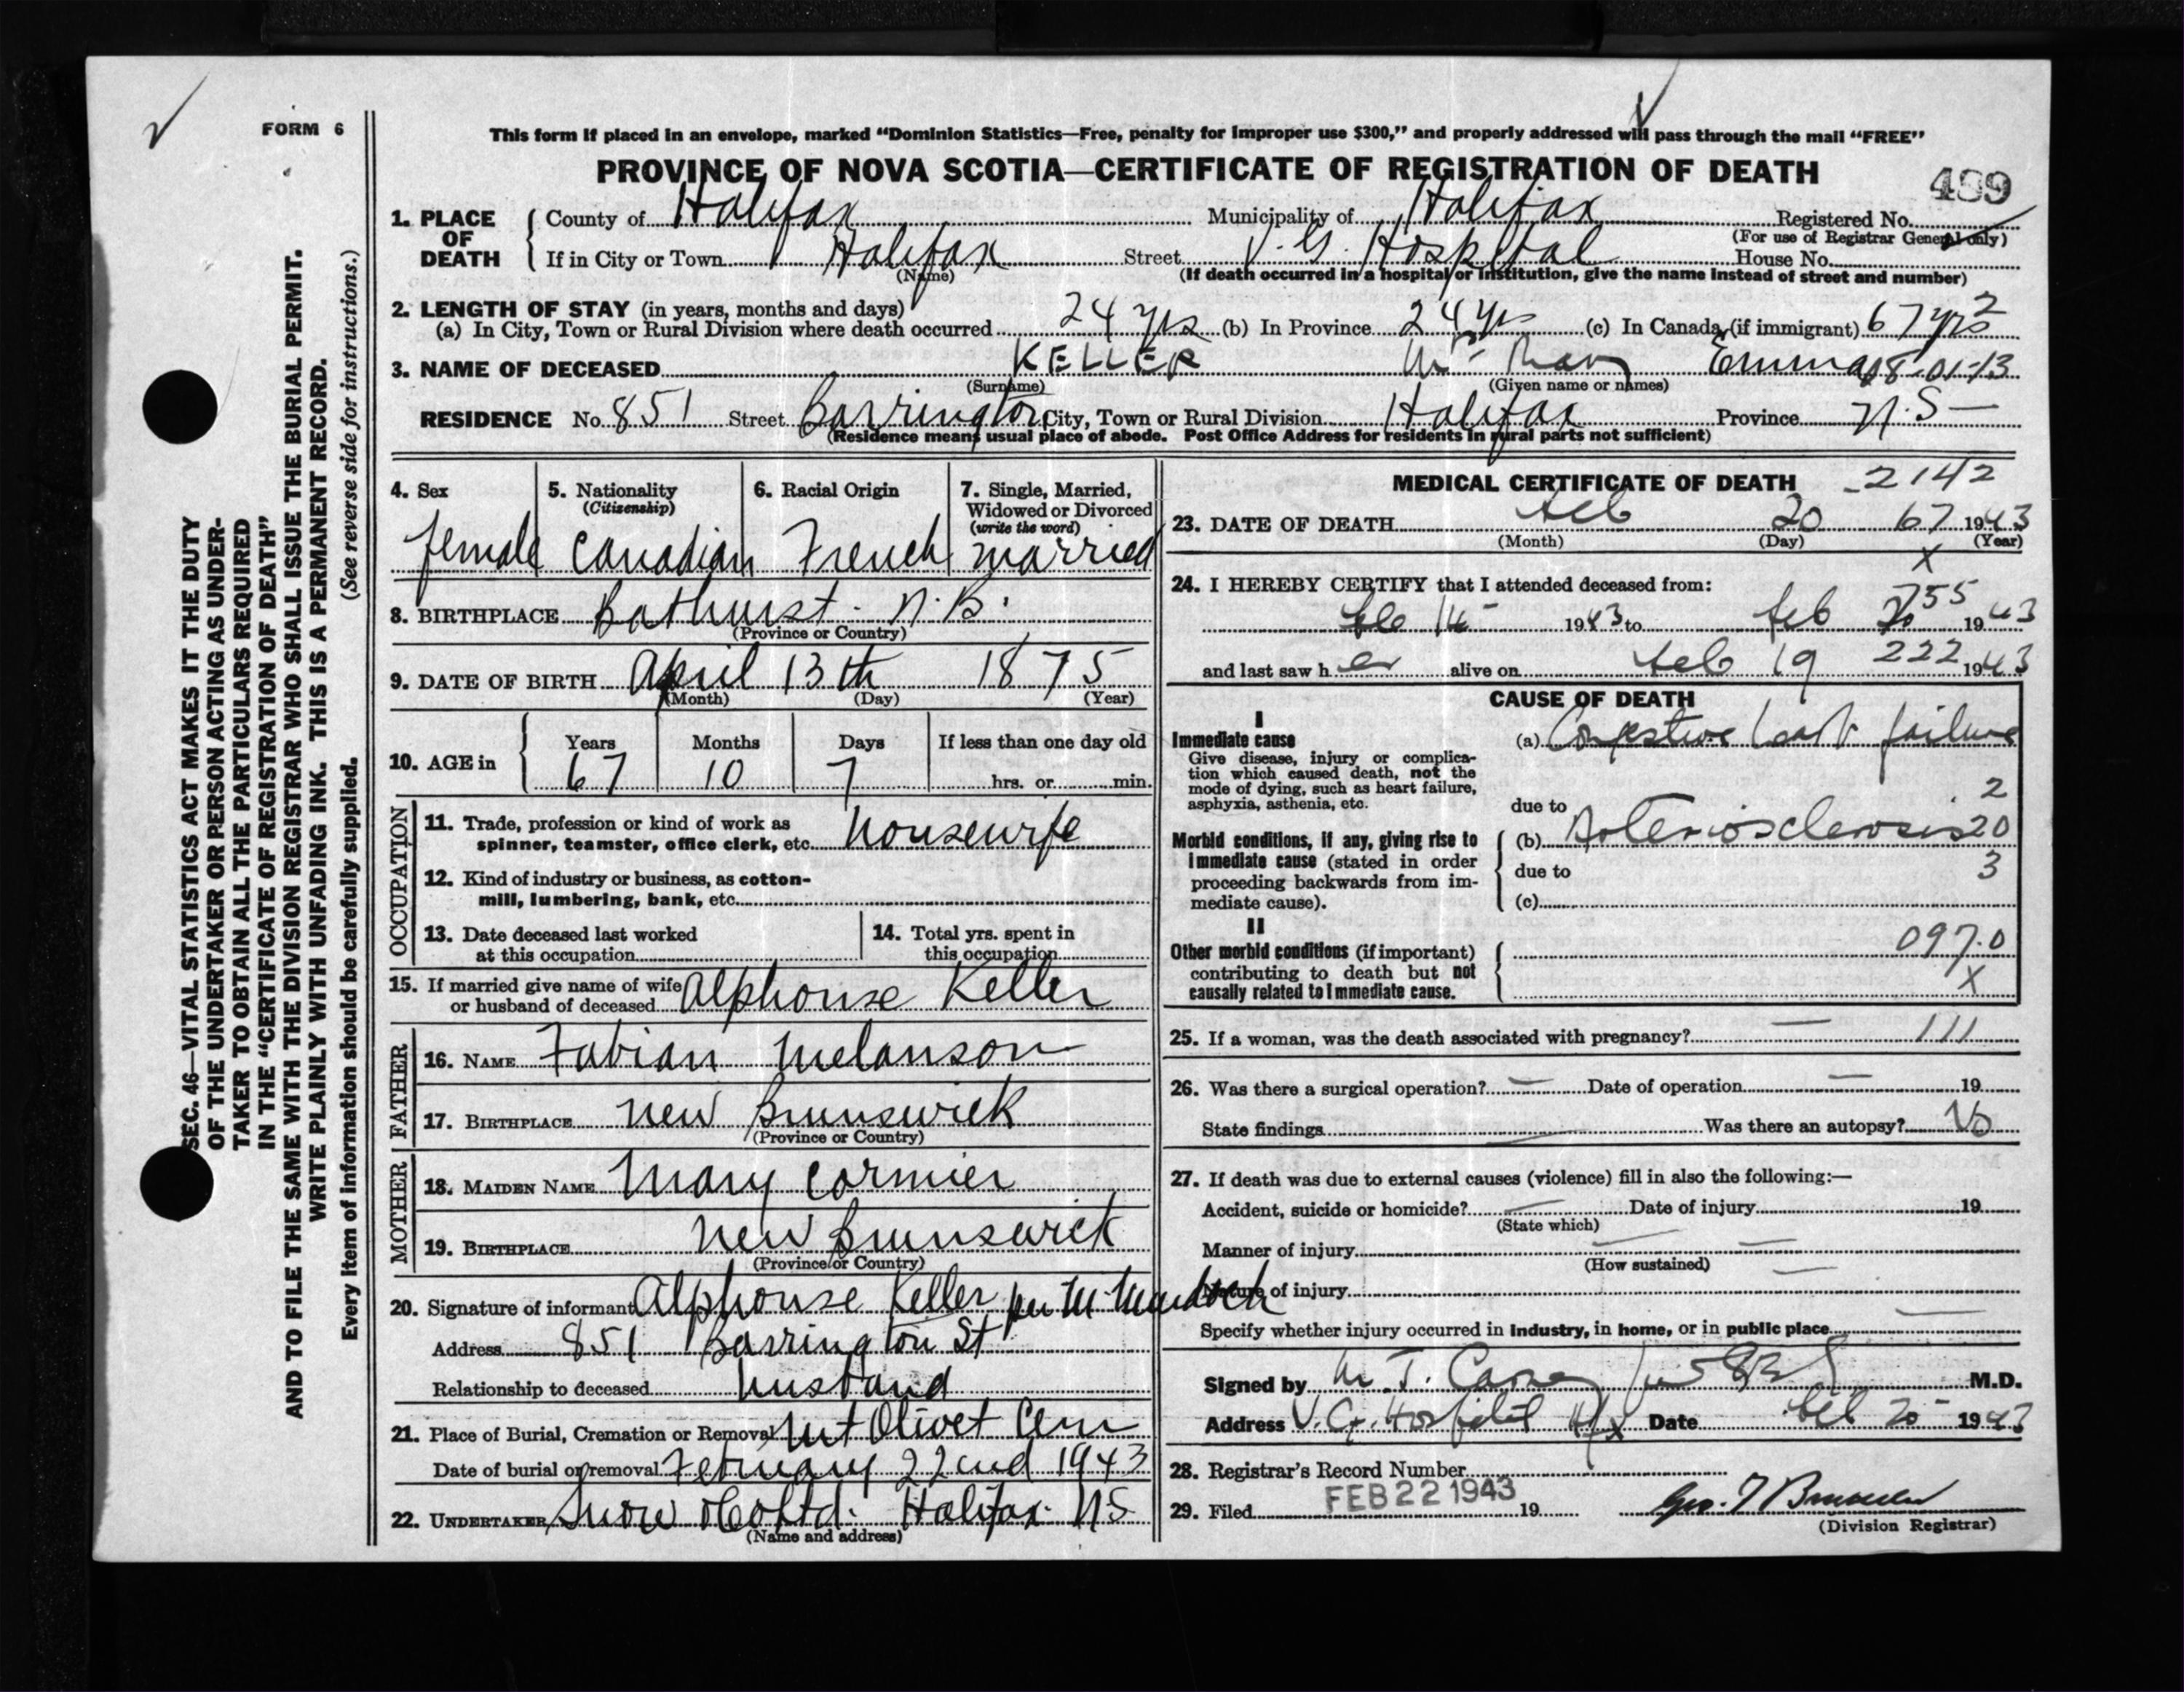 FORM 6
This form if placed in an envelope, marked “Dominion Statistics—Free, penalty for improper use $300,” and properly addressed will pass through the mail “FREE”
PROVINCE OF NOVA SCOTIA—CERTIFICATE OF REGISTRATION OF DEATH
489
1. PLACE OF DEATH
County of Halifax Municipality of Halifax Registered No.
(For use of Registrar General only)
If in City or Town Halifax Street V. G. Hospital House No.
(Name) (If death occurred in a hospital or institution, give the name instead of street and number)
2. LENGTH OF STAY (in years, months and days)
(a) In City, Town or Rural Division where death occurred 24 yrs (b) In Province 24 yrs (c) In Canada (if immigrant) 67 yrs 2
3. NAME OF DECEASED KELLER Emma 18-01-13
(Surname) (Given name or names)
RESIDENCE No. 851 Street Barrington City, Town or Rural Division Halifax Province N.S—
(Residence means usual place of abode. Post Office Address for residents in rural parts not sufficient)
4. Sex female
5. Nationality (Citizenship) Canadian
6. Racial Origin French
7. Single, Married, Widowed or Divorced (write the word) married
8. BIRTHPLACE Bathurst. N.B.
(Province or Country)
9. DATE OF BIRTH April 13th 1875
(Month) (Day) (Year)
10. AGE in
Years Months Days If less than one day old
67 10 7 hrs. or min.
OCCUPATION
11. Trade, profession or kind of work as
spinner, teamster, office clerk, etc. Housewife
12. Kind of industry or business, as cotton-
mill, lumbering, bank, etc.
13. Date deceased last worked
at this occupation
14. Total yrs. spent in
this occupation
15. If married give name of wife
or husband of deceased Alphonse Keller
FATHER
16. NAME Fabian Melanson
17. BIRTHPLACE New Brunswick
(Province or Country)
MOTHER
18. MAIDEN NAME Mary Cormier
19. BIRTHPLACE New Brunswick
(Province or Country)
20. Signature of informant Alphonse Keller per M Murdoch
Address 851 Barrington St
Relationship to deceased husband
21. Place of Burial, Cremation or Removal Mt Olivet Cem
Date of burial or removal February 22nd 1943
22. UNDERTAKER Snow & Co Ltd. Halifax. N.S
(Name and address)
MEDICAL CERTIFICATE OF DEATH -2142
23. DATE OF DEATH Feb 20 67 1943
(Month) (Day) (Year)
X
24. I HEREBY CERTIFY that I attended deceased from:
755
Feb 1943 to Feb 20 1943
and last saw her alive on Feb 19 222 1943
CAUSE OF DEATH
I
Immediate cause
Give disease, injury or complica-
tion which caused death, not the
mode of dying, such as heart failure,
asphyxia, asthenia, etc.
(a) Congestive heart failure
due to 2
Morbid conditions, if any, giving rise to
immediate cause (stated in order
proceeding backwards from im-
mediate cause).
(b) Arteriosclerosis 20
due to 3
(c)
II
Other morbid conditions (if important)
contributing to death but not
causally related to immediate cause.
097.0
X
25. If a woman, was the death associated with pregnancy? — 111
26. Was there a surgical operation? — Date of operation — 19
State findings Was there an autopsy? No
27. If death was due to external causes (violence) fill in also the following:—
Accident, suicide or homicide? — Date of injury 19
(State which)
Manner of injury
(How sustained)
Nature of injury
Specify whether injury occurred in industry, in home, or in public place
Signed by M.D.
Address V.G. Hospital Hfx Date Feb 20 1943
28. Registrar's Record Number
29. Filed FEB 22 1943 19
(Division Registrar)
SEC. 46—VITAL STATISTICS ACT MAKES IT THE DUTY
OF THE UNDERTAKER OR PERSON ACTING AS UNDER-
TAKER TO OBTAIN ALL THE PARTICULARS REQUIRED
IN THE “CERTIFICATE OF REGISTRATION OF DEATH”
AND TO FILE THE SAME WITH THE DIVISION REGISTRAR WHO SHALL ISSUE THE BURIAL PERMIT.
WRITE PLAINLY WITH UNFADING INK. THIS IS A PERMANENT RECORD.
Every item of information should be carefully supplied. (See reverse side for instructions.)